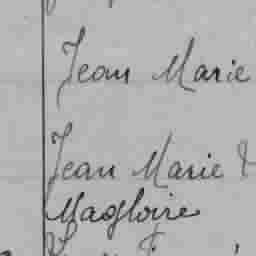 Jean Marie
Jean Marie &
Magloire